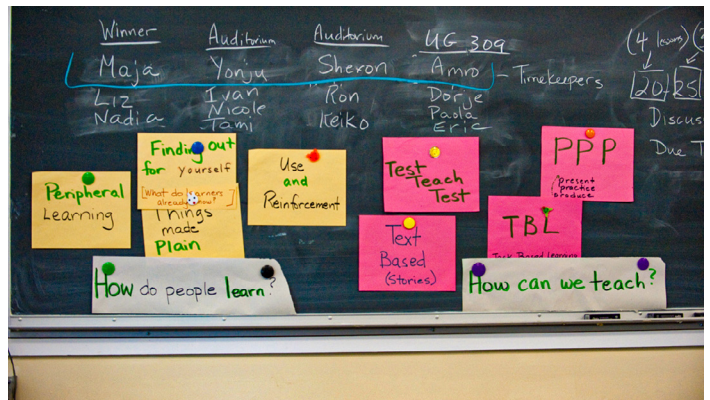 Winner Auditorium Auditorium UG 309
Maja Yonju Sheron Amro - Timekeepers
Liz Ivan Ron Dorje
Nadia Nicole Keiko Paola
Tami Eric
(4 lessons)
20-25
Discus
Due T
Peripheral
Learning
Finding out
for yourself
[What do learners
already know?]
Things
made
Plain
Use
and
Reinforcement
Test
Teach
Test
Text
Based
(Stories)
PPP
present
practice
produce
TBL
Task Based Learning
How do people learn?
How can we teach?